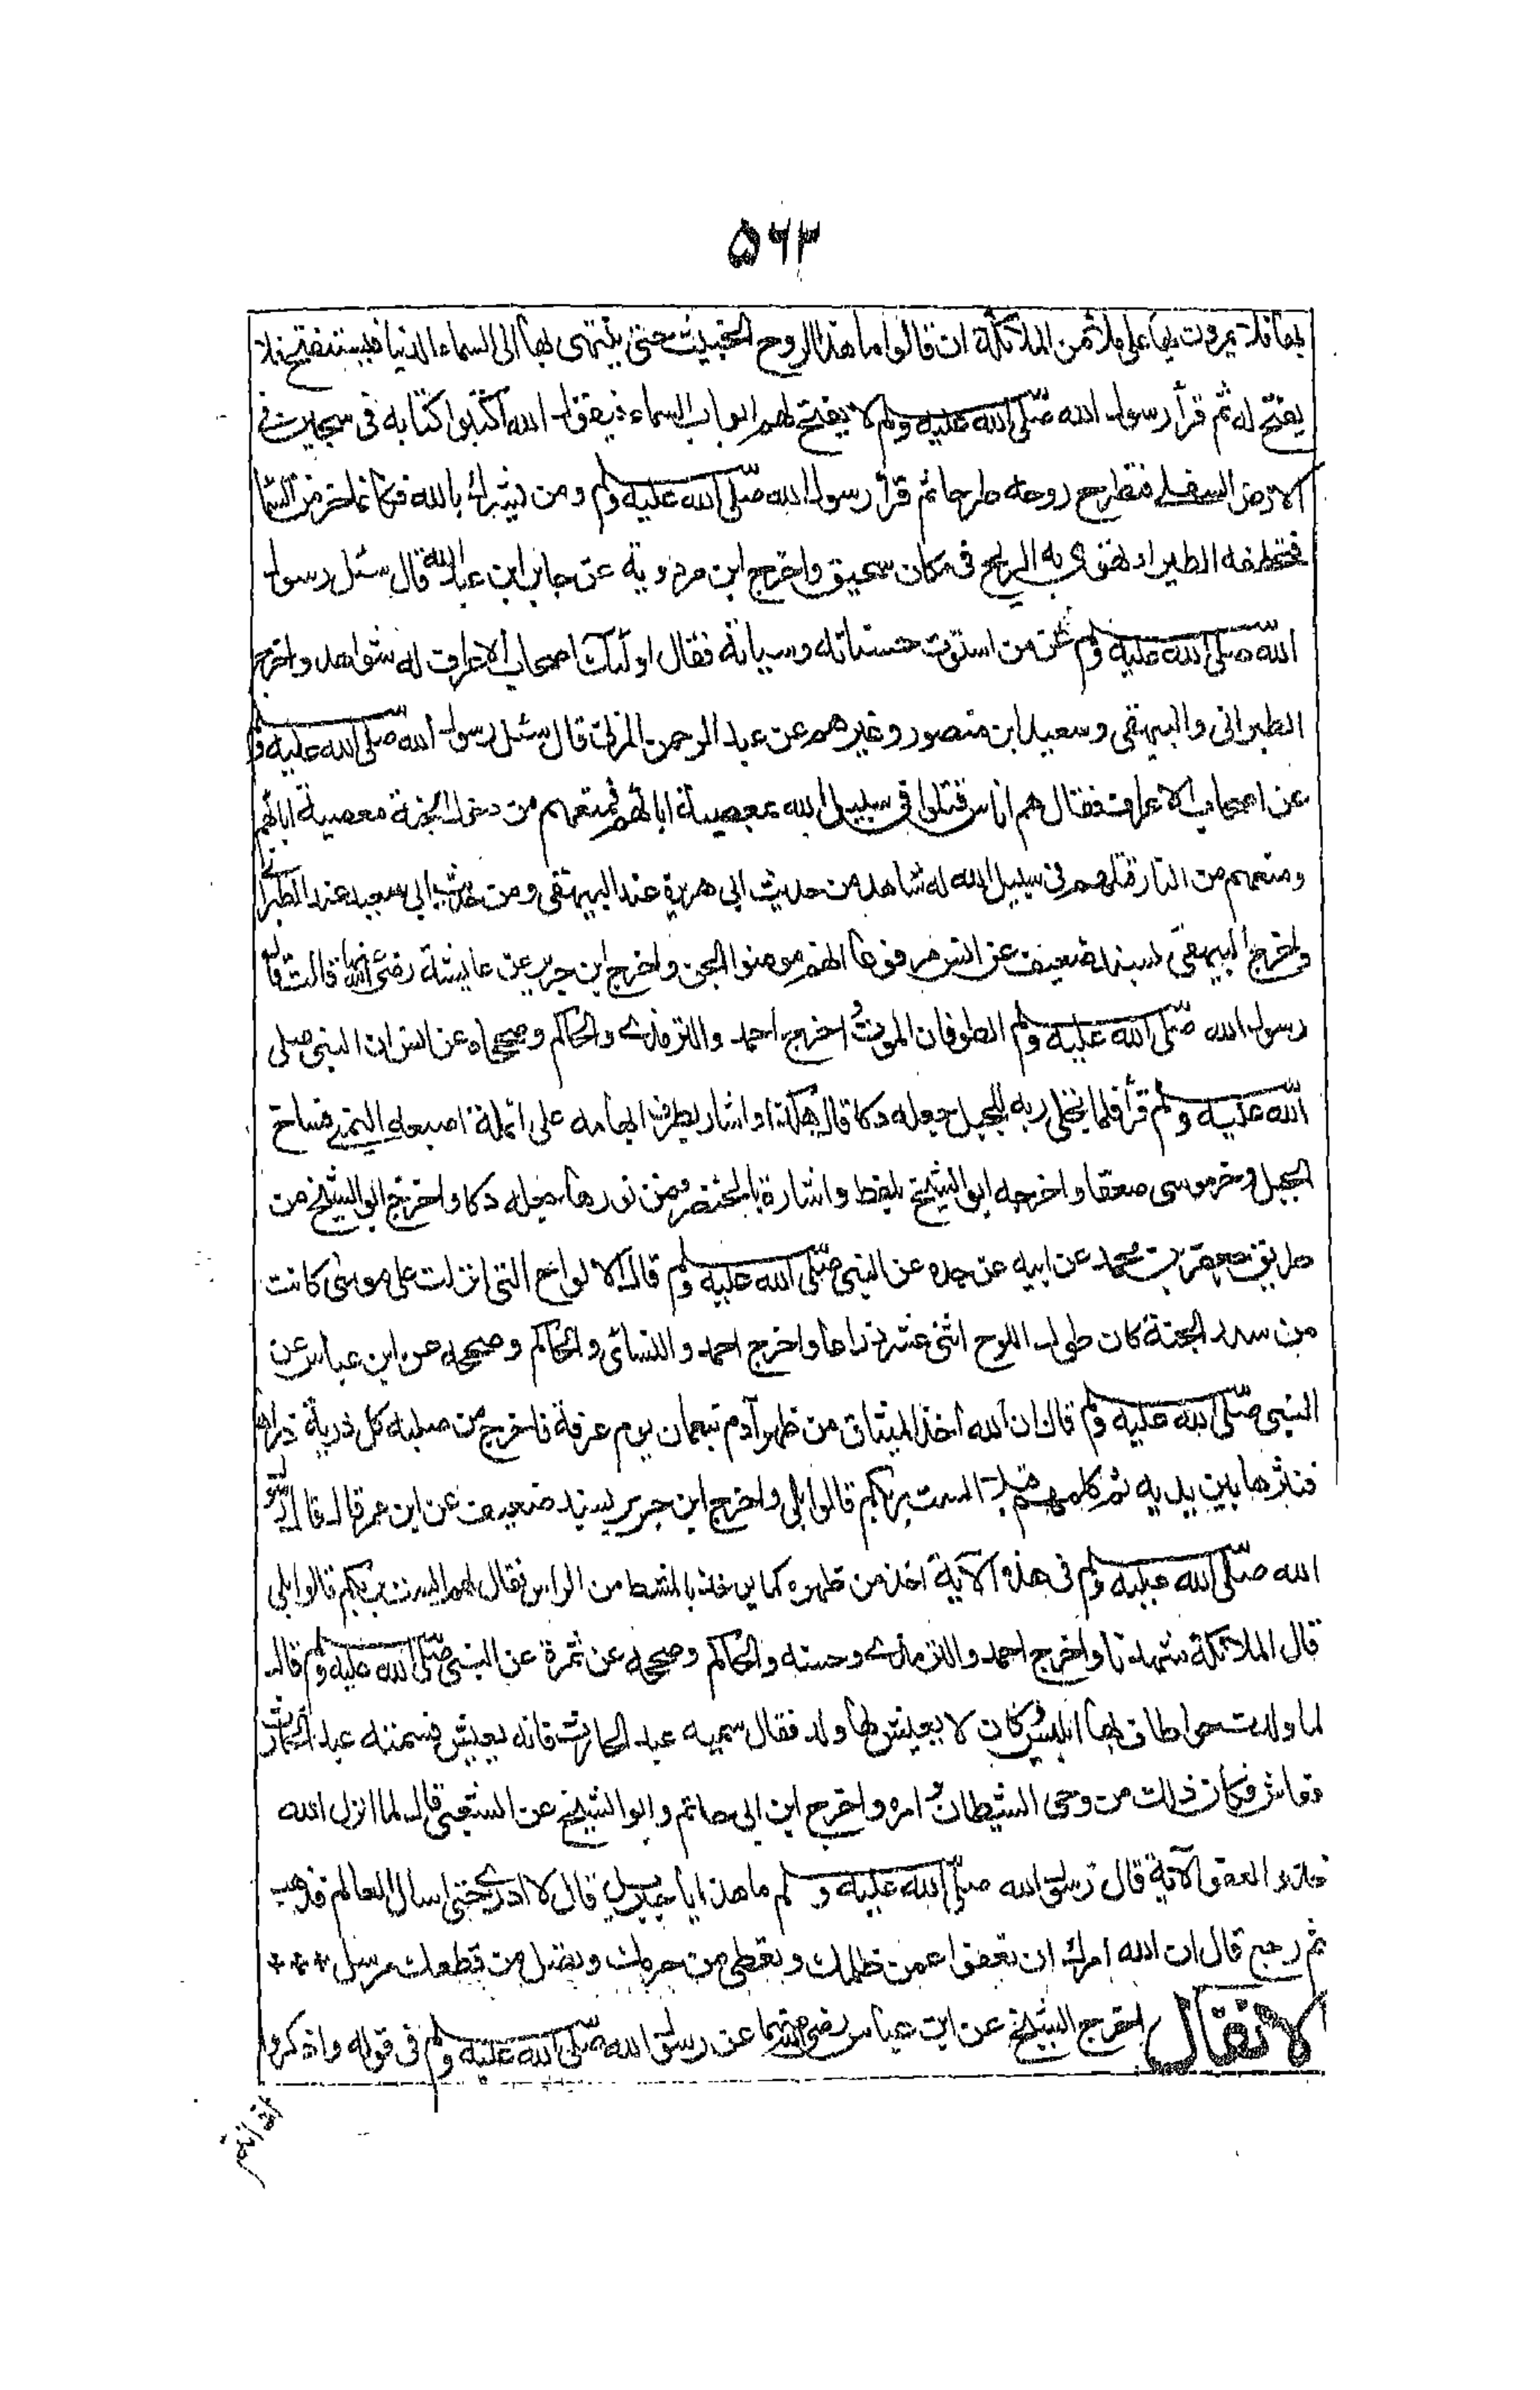 ۵۶۳
بها فلا يمرون بها على ملأ من الملائكة ان قالوا ما هذا الروح الخبيث حتى ينتهى بها الى السماء الدنيا فيستفتح فلا
يفتح له ثم قرأ رسول الله صلى الله عليه ولم لا يفتح لهم ابواب السماء فيقول الله اكتبوا كتابه فى سجين فى
الارض السفلى فتطرح روحه طرحا ثم قرأ رسول الله صلى الله عليه ولم ومن يشرك بالله فكانما خر من السما
فتخطفه الطير او تهوى به الريح فى مكان سحيق واخرج ابن مردوية عن جابر ابن عبد الله قال سئل رسول
الله صلى الله عليه ولم عن من استوت حسناته وسياته فقال اولئك اصحاب الاعراف له شواهد واخرج
الطبرانى والبيهقى وسعيد ابن منصور وغيرهم عن عبد الرحمن المزنى قال سئل رسول الله صلى الله عليه ولم
عن اصحاب الاعراف فقال هم اناس قتلوا فى سبيل الله بمعصية ابائهم فمنعهم من دخول الجنة معصية ابائهم
ومنعهم من النار قتلهم فى سبيل الله له شاهد من حديث ابى هريرة عند البيهقى ومن حديث ابى سعيد عند الطبرانى
واخرج البيهقى بسند ضعيف عن انس مرفوعا انهم مومنوا الجن واخرج ابن جرير عن عايشة رضى الله عنها قالت قال
رسول الله صلى الله عليه ولم الطوفان الموت اخرج احمد والترمذى والحاكم وصححاه عن انس ان النبى صلى
الله عليه ولم قرأ فلما تجلى ربه للجبل جعله دكا قال هكذا واشار بطرف ابهامه على انملة اصبعه اليمنى فساخ
الجبل وخر موسى صعقا واخرجه ابو الشيخ بلفظ واشارة بالخنصر فمن نورها جعله دكا واخرج ابو الشيخ من
طريق جعفر بن محمد عن ابيه عن جده عن النبى صلى الله عليه ولم قال الالواح التى انزلت على موسى كانت
من سدر الجنة كان طول اللوح اثنى عشر ذراعا واخرج احمد والنسائى والحاكم وصححه عن ابن عباس عن
النبى صلى الله عليه ولم قال ان الله اخذ الميثاق من ظهر آدم بنعمان يوم عرفة فاخرج من صلبه كل ذرية ذراها
فنثرها بين يديه ثم كلمهم الست بربكم قالوا بلى واخرج ابن جرير بسند ضعيف عن ابن عمر قال قال رسول
الله صلى الله عليه ولم فى هذه الآية اخذ من ظهره كما يوخذ بالمشط من الراس فقال لهم الست بربكم قالوا بلى
قال الملائكة شهدنا واخرج احمد والترمذى وحسنه والحاكم وصححه عن ثمرة عن النبى صلى الله عليه ولم قال
لما ولدت حوا طاف بها ابليس وكان لا يعيش لها ولد فقال سميه عبد الحارث فانه يعيش فسمته عبد الحارث
فعاش فكان ذلك من وحى الشيطان وامره واخرج ابن ابى حاتم وابو الشيخ عن الشعبى قال لما انزل الله
خذ العفو الآية قال رسول الله صلى الله عليه ولم ما هذا يا جبريل قال لا ادرى حتى اسال العالم فذهب
ثم رجع قال ان الله امرك ان تعفوا عمن ظلمك وتعطى من حرمك وتصل من قطعك مرسل ***
الانفال اخرج الشيخ عن ابن عباس رضى الله عنهما عن رسول الله صلى الله عليه ولم فى قوله واذكروا